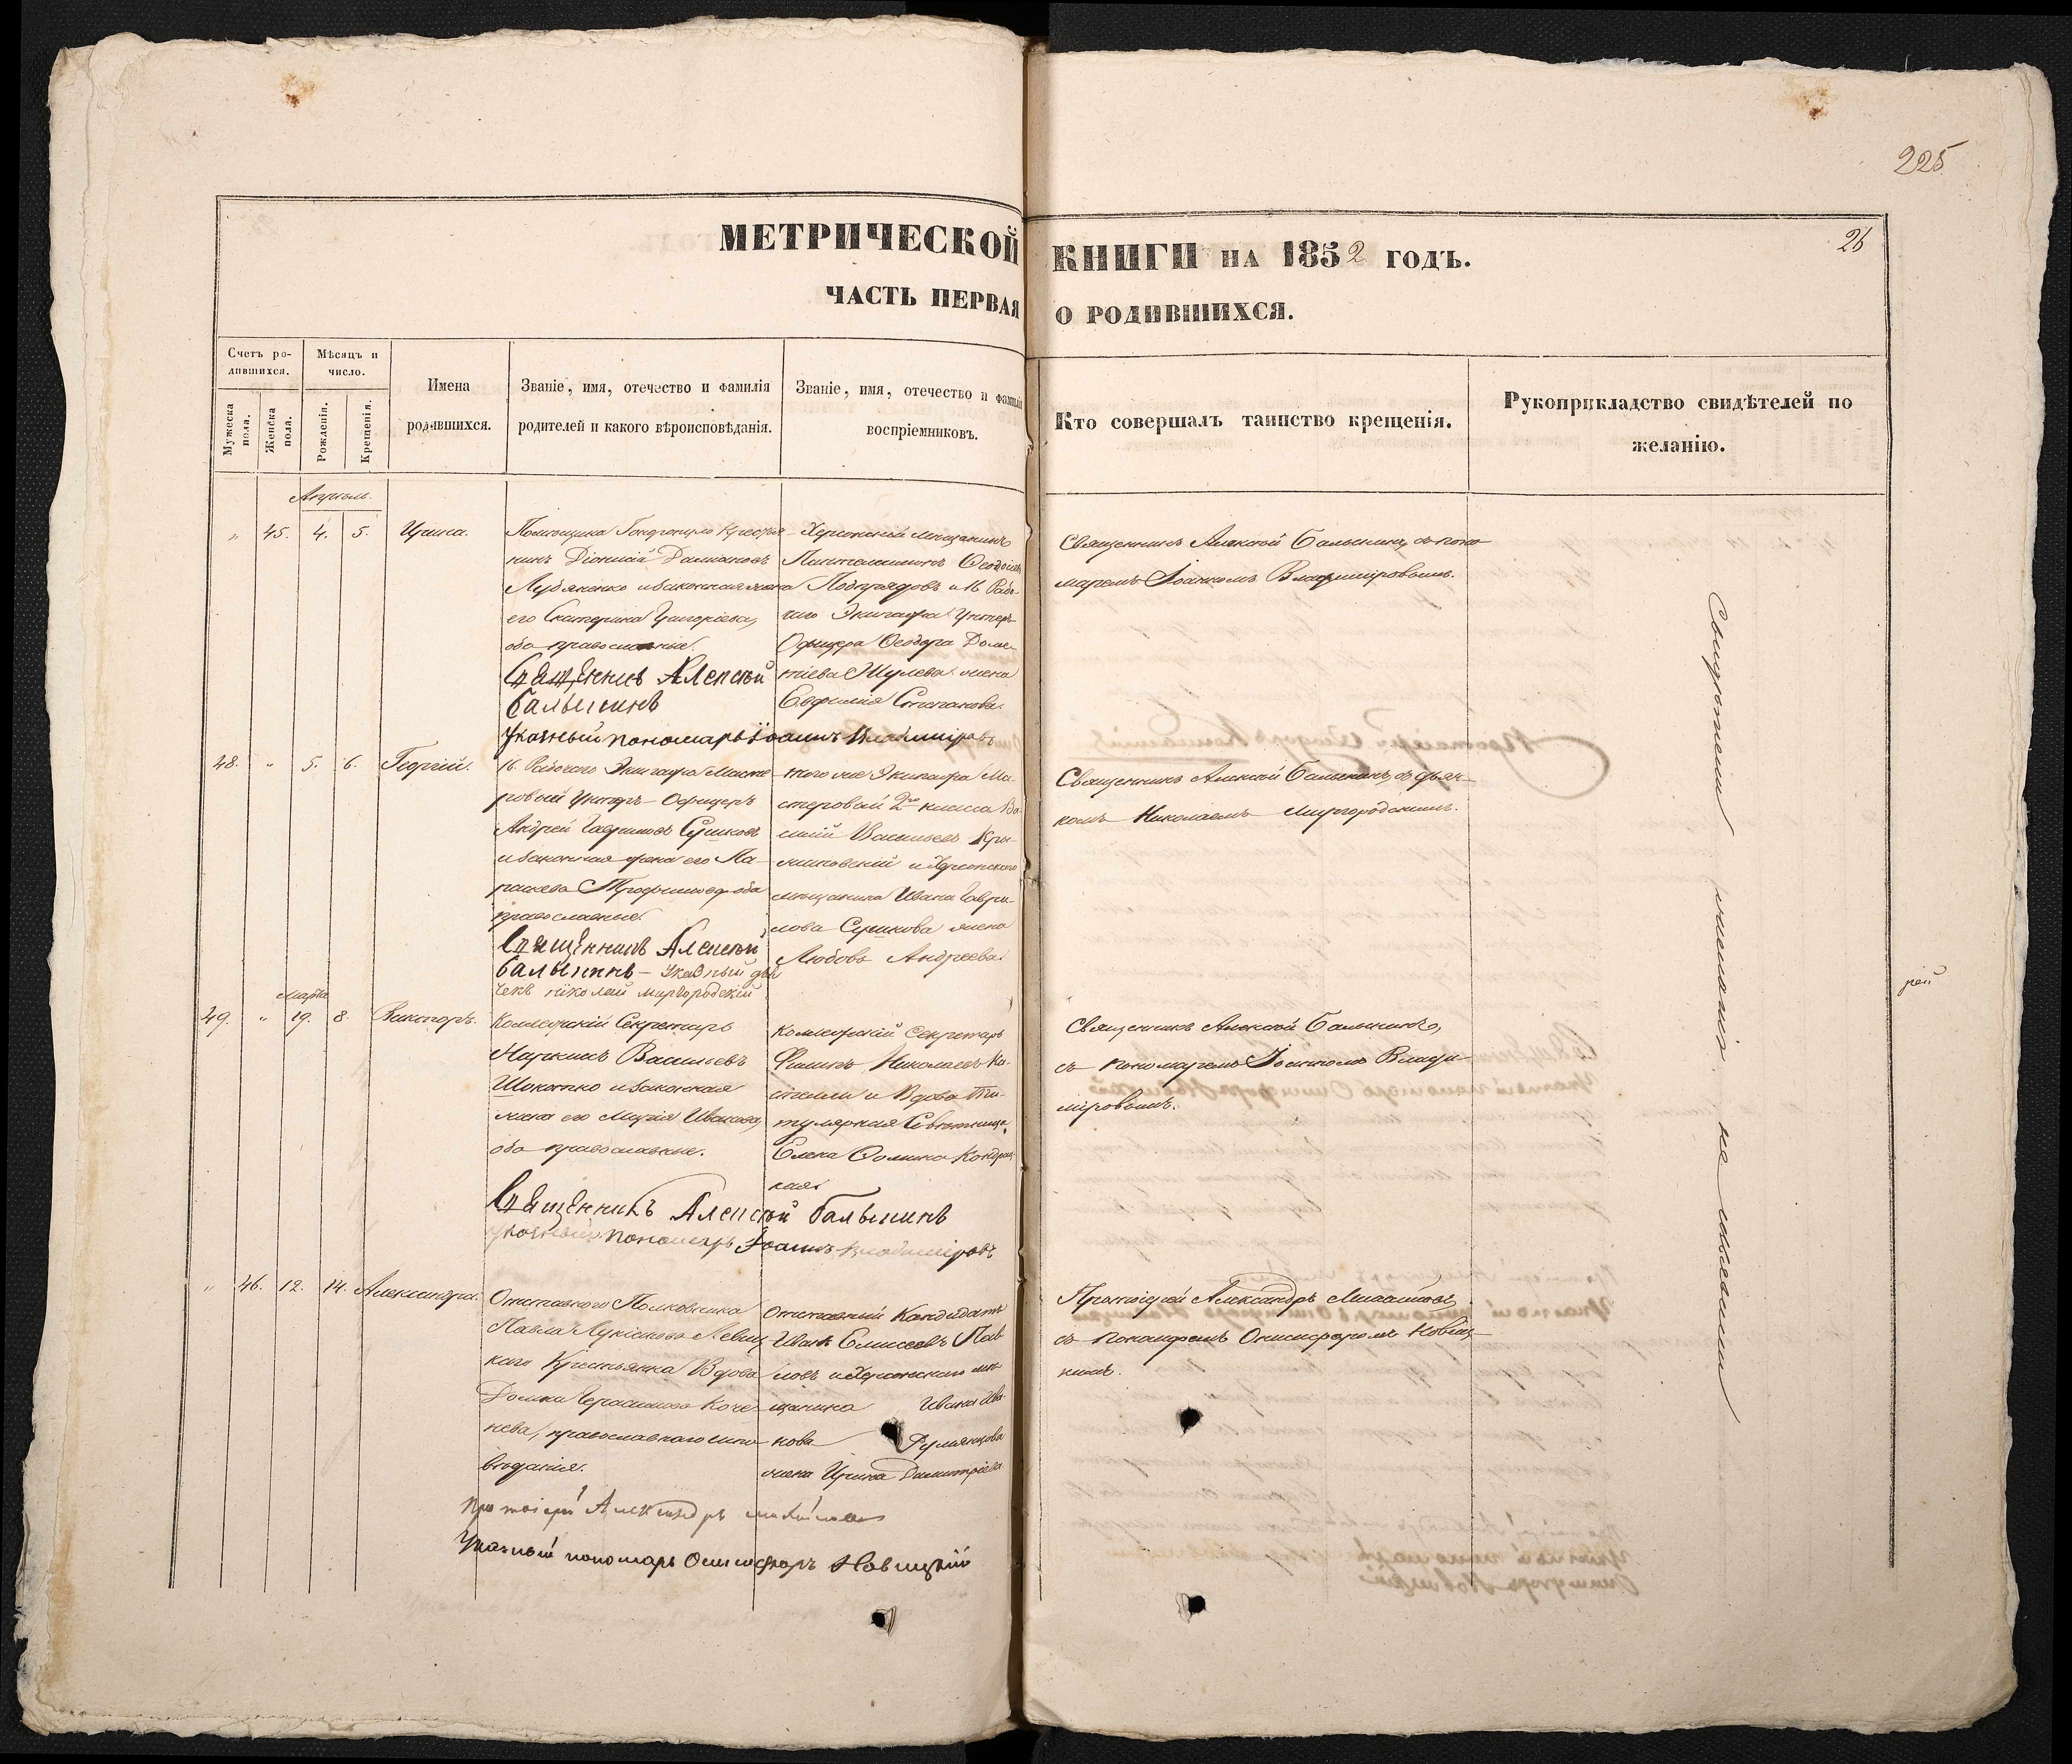 225
МЕТРИЧЕСКОЙ КНИГИ НА 1852 ГОДЪ.
26
ЧАСТЬ ПЕРВАЯ О РОДИВШИХСЯ.
Счетъ ро-
дившихся.
Мѣсяцъ и
число.
Мужеска
пола.
Женска
пола.
Рожденія.
Крещенія.
Имена
родившихся.
Званіе, имя, отечество и фамилія
родителей и какого вѣроисповѣданія.
Званіе, имя, отечество и фамилія
воспріемниковъ.
Кто совершалъ таинство крещенія.
Рукоприкладство свидѣтелей по
желанію.
Апрель.
„ 45. 4. 5. Ирина.
Помощика Крестья-
нинъ Діонисій Даміановъ
и законная жена
его Екатерина Григоріева,
оба православные.
Священникъ Алексѣй
Балыкинъ
Указный пономарь Іоаннъ Владиміровъ
Херсонскій мѣщанинъ
Пантелеимонъ Ѳеодосіевъ
и 16. Рабо-
чаго Экипажа Унтеръ
Офицера Ѳеодора Доме-
тіева Жулева жена
Евфимія Степанова.
Священникъ Алексѣй Балыкинъ, съ поно-
маремъ Іоанномъ Владиміровымъ.
48. „ 5. 6. Георгій.
16. Рабочаго Экипажа Масте-
ровый Унтеръ-Офицеръ
Андрей Гавриловъ Сушковъ
и законная жена его Па-
раскева Трофимова, оба
православные.
Священникъ Алексѣй
Балыкинъ – Указный дья
чекъ Николай Миргородскій
того же Экипажа Ма-
стеровый 2го класса Ва-
силій Васильевъ Кры-
жановскій и Херсонскаго
мѣщанина Ивана Гаври-
лова Сушкова жена
Любовь Андреева.
Священникъ Алексѣй Балыкинъ, съ дьяч-
комъ Николаемъ Миргородскимъ.
Марта
49. „ 19. 8. Викторъ.
Коллежскій Секретарь
Наркисъ Васильевъ
Шокотко и законная
жена его Марія Иванова,
оба православные.
Священникъ Алексѣй Балыкинъ
Указный пономарь Іоаннъ Владиміровъ
Коллежскій Секретарь
Филипъ Николаевъ Ка-
стелли и Вдова Ти-
тулярная Совѣтница,
Елена Ѳомина Кондрац-
кая.
Священникъ Алексѣй Балыкинъ,
съ пономаремъ Іоанномъ Влади-
міровымъ.
„ 46. 12. 14. Александра.
Отставного Полковника
Павла Лукіанова Левиц-
каго Крестьянка Вдова
Домна Герасимова Коче-
нева, православнаго испо-
вѣданія.
Протоіерей Александръ
Указный пономарь Онисифоръ Новицкій
Отставный Кандидатъ
Иванъ Елисеевъ Пав-
ловъ и Херсонскаго мѣ-
щанина Ивана Ива-
нова Румянцова
жена Ирина Димитріева
Протоіерей Александръ
съ пономаремъ Онисифоромъ Новиц-
кимъ.
Свидѣтели желанія не имѣли
рей